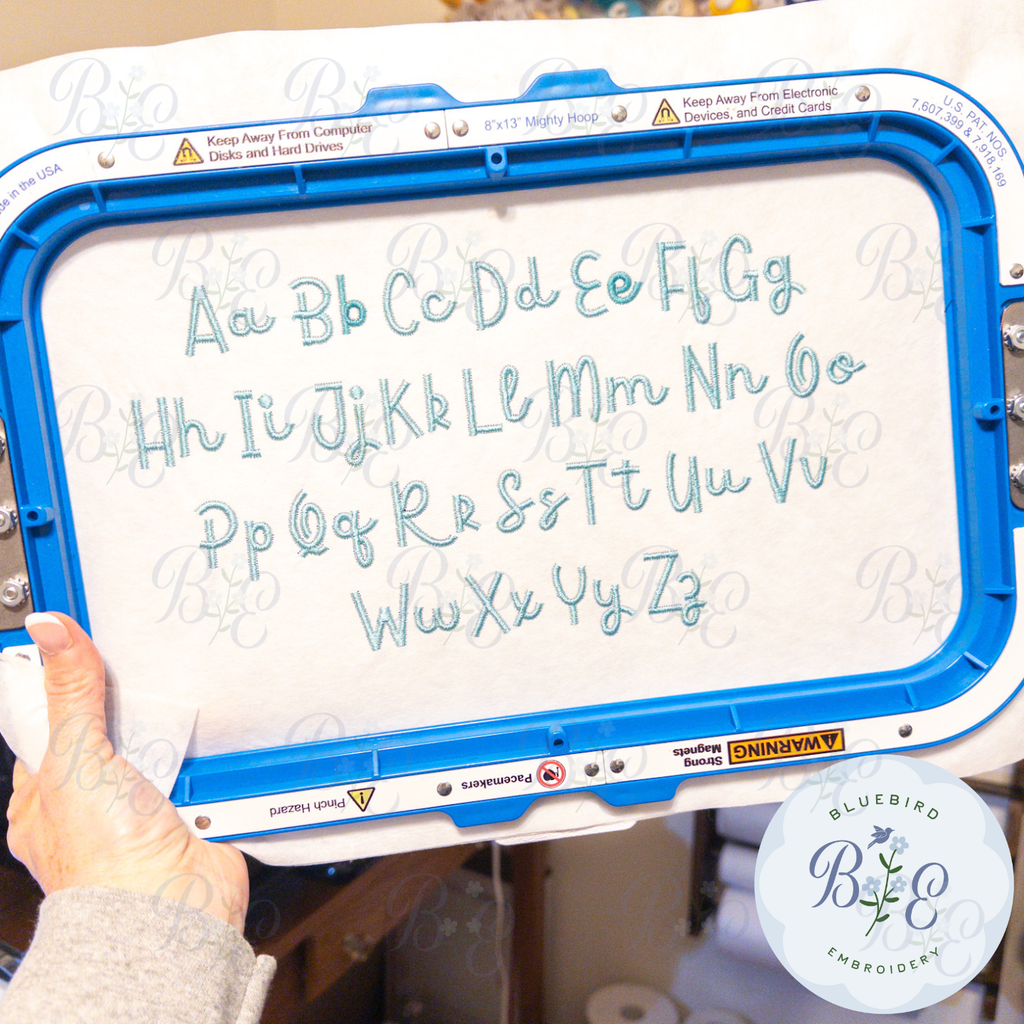 Keep Away From Computer
Disks and Hard Drives
8"x13" Mighty Hoop
Keep Away From Electronic
Devices, and Credit Cards
U.S. PAT. NOS.
7,607,399 & 7,918,169
in the USA
Aa Bb Cc Dd Ee Ff Gg
Hh Ii Jj Kk Ll Mm Nn Oo
Pp Qq Rr Ss Tt Uu Vv
Ww Xx Yy Zz
Pinch Hazard
Pacemakers
Strong
Magnets
WARNING
BLUEBIRD
B E
EMBROIDERY